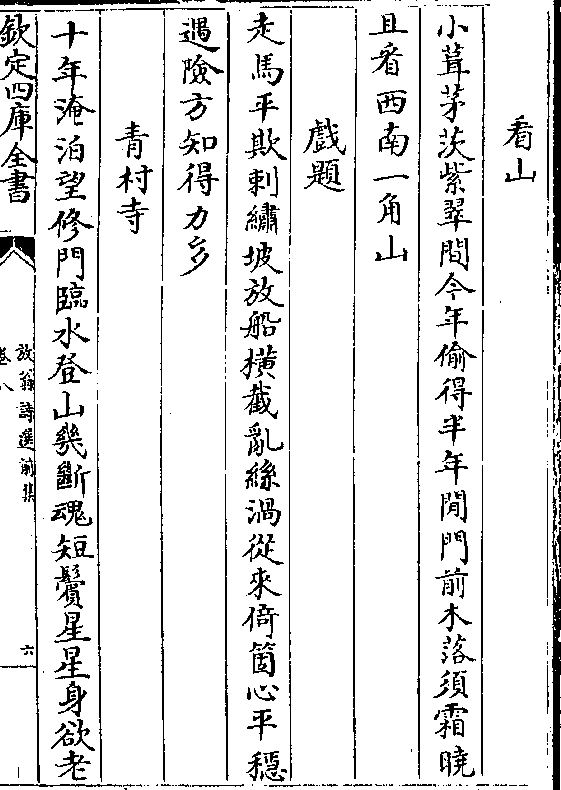 看山
小葺茅茨紫翠間今年偷得半年閒門前木落須霜曉
且看西南一角山
戲題
走馬平欺刺繡坡放船橫截亂絲渦從來倚箇心平穩
遇險方知得力多
青村寺
十年淹泊望修門臨水登山幾斷魂短鬢星星身欲老
欽定四庫全書
放翁詩選前集
卷八
六